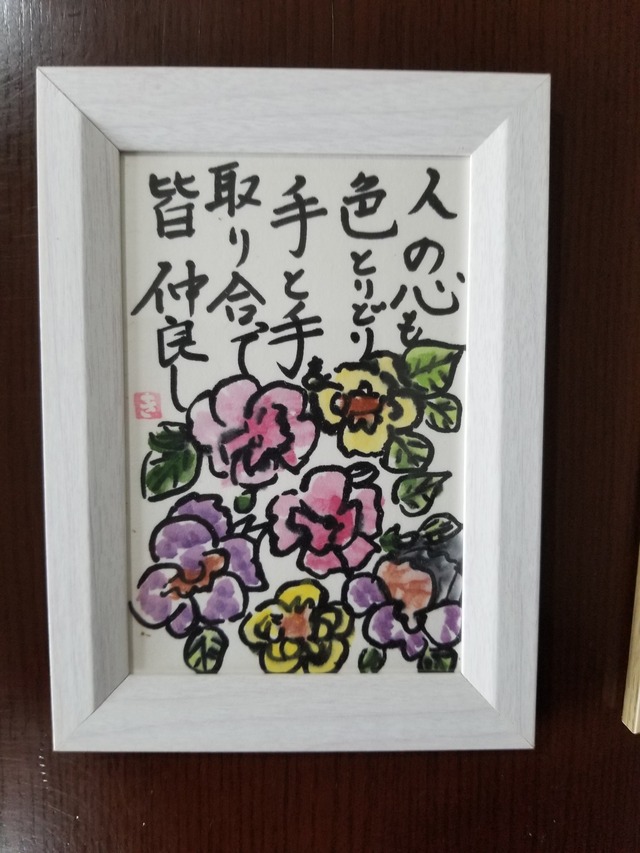 人の心も
色とりどり
手と手を
取り合って
皆仲良し
き